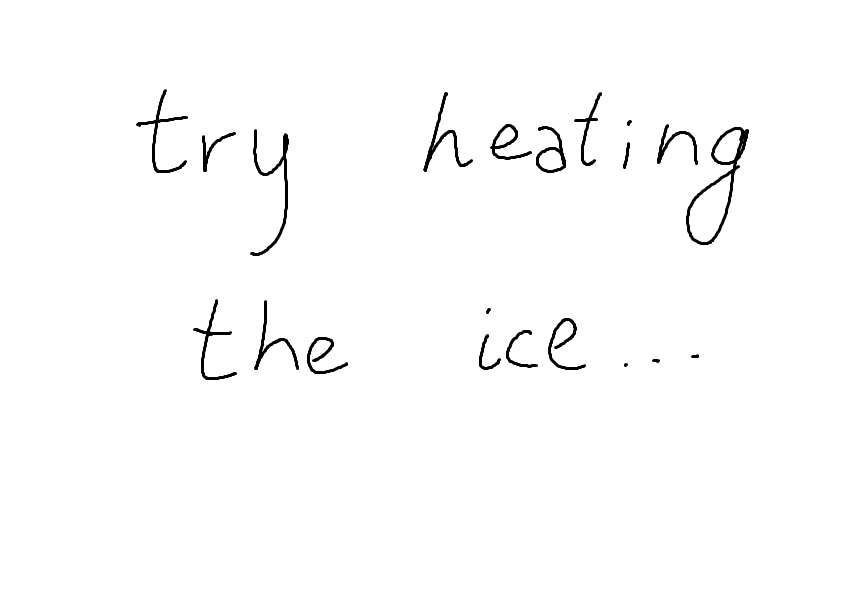 try heating
the ice...